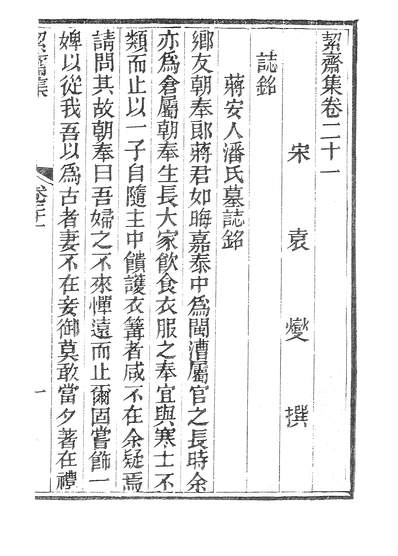 絜齋集卷二十一
宋 袁燮 撰
誌銘
蔣安人潘氏墓誌銘
鄉友朝奉郎蔣君如晦嘉泰中為閩漕屬官之長時余
亦為倉屬朝奉生長大家飲食衣服之奉宜與寒士不
類而止以一子自隨主中饋護衣篝者咸不在余疑焉
請問其故朝奉曰吾婦之不來憚遠而止爾固嘗飾一
婢以從我吾以為古者妻不在妾御莫敢當夕著在禮
絜齋集
卷二十一
一